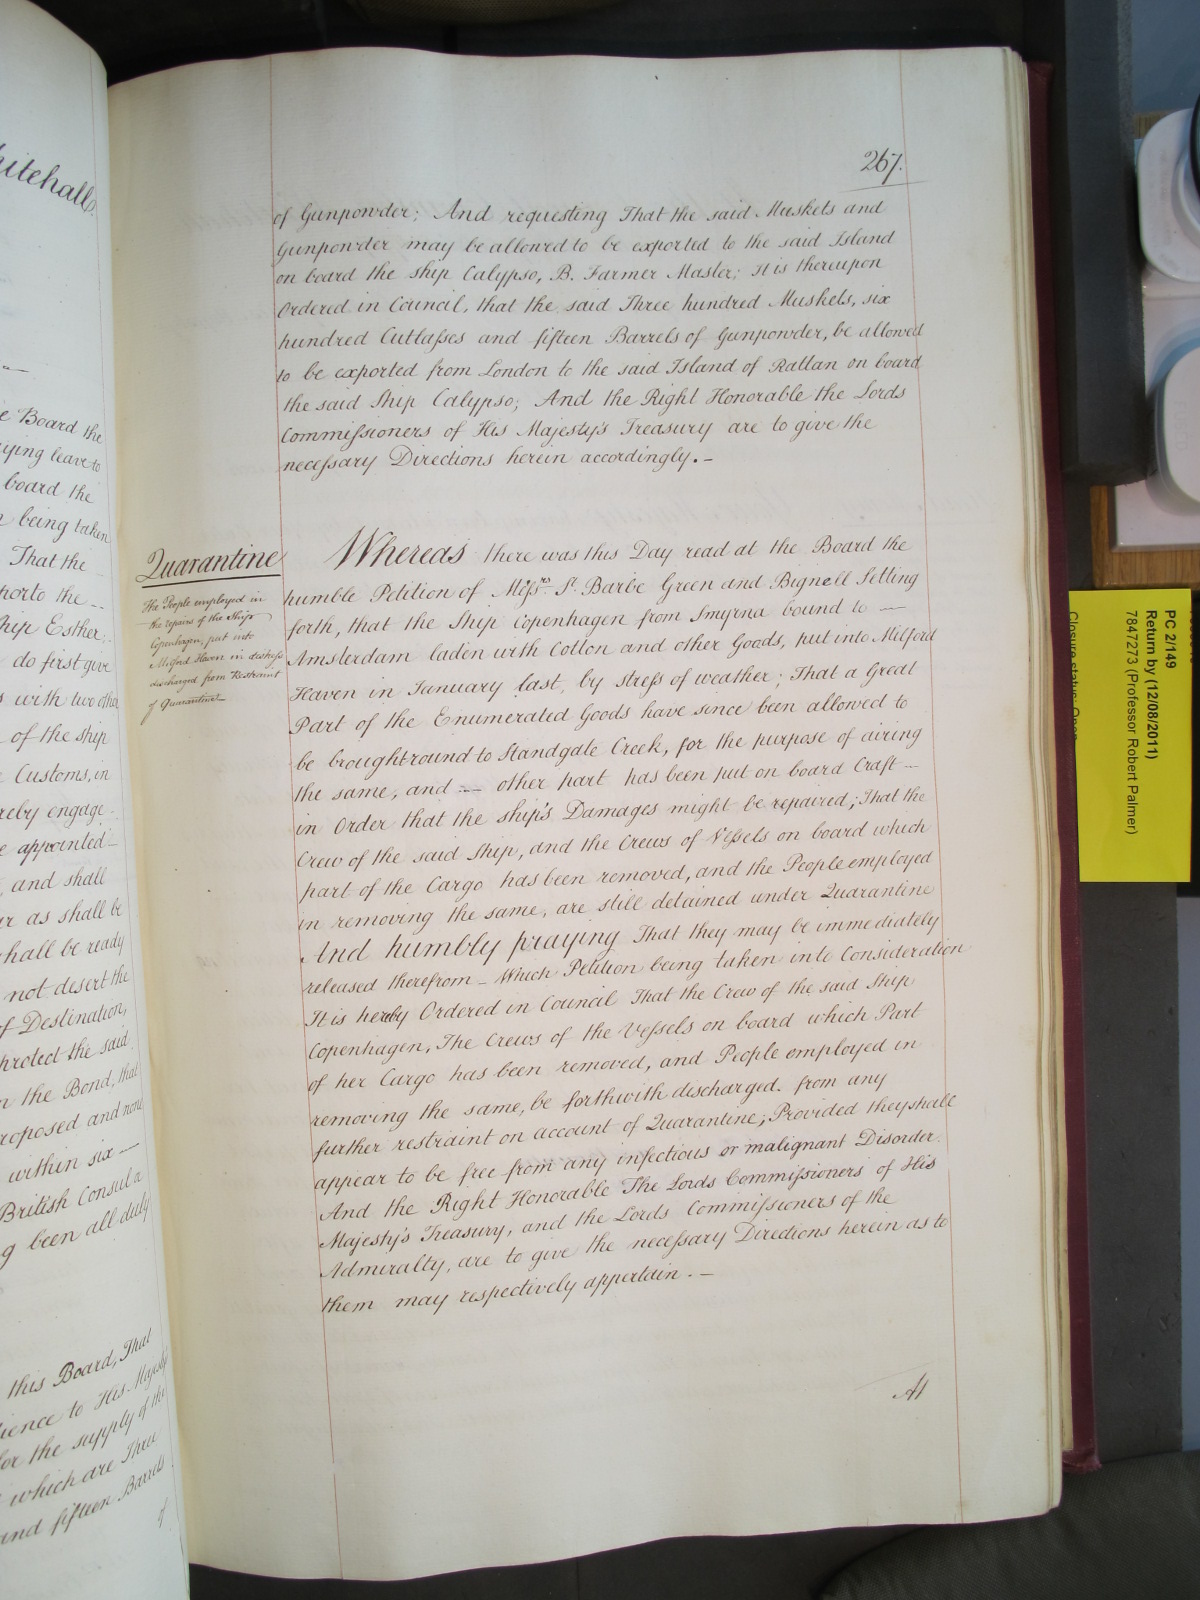 hitehall.
e Board the
ying leave to
board the
n being taken
That the
porto the --
hip Esther,
do first give
s with two other
of the ship
Customs, in
reby engage
e appointed
, and shall
ur as shall be
shall be ready
not desert the
f Destination,
protect the said
n the Bond, that
roposed and none
within six —
British Consul a
g been all duly
this Board, That
ience to His Majesty
for the supply of the
which are Three
and fifteen Barrels
of
267.
of Gunpowder; And requesting That the said Muskets and
Gunpowder may be allowed to be exported to the said Island
on board the ship Calypso, B. Farmer Master; It is thereupon
Ordered in Council, that the said Three hundred Muskets, six
hundred Cutlasses and fifteen Barrels of Gunpowder, be allowed
to be exported from London to the said Island of Rattan on board
the said Ship Calypso; And the Right Honorable the Lords
Commissioners of His Majesty's Treasury are to give the
necessary Directions herein accordingly. –
Quarantine
The People employed in
the repairs of the Ship
Copenhagen, put into
Milford Haven in distress
discharged from Restraint
of Quarantine
Whereas there was this Day read at the Board the
humble Petition of Messrs. St. Barbe Green and Bignell Setting
forth, that the Ship Copenhagen from Smyrna bound to —
Amsterdam laden with Cotton and other Goods, put into Milford
Haven in January last, by stress of weather; That a Great
Part of the Enumerated Goods have since been allowed to
be brought round to Standgate Creek, for the purpose of airing
the same, and --- other part has been put on board Craft —
in Order that the ship's Damages might be repaired; That the
Crew of the said Ship, and the Crews of Vessels on board which
part of the Cargo has been removed, and the People employed
in removing the same, are still detained under Quarantine
And humbly praying That they may be immediately
released therefrom – Which Petition being taken into Consideration
It is hereby Ordered in Council That the Crew of the said Ship
Copenhagen, The Crews of the Vessels on board which Part
of her Cargo has been removed, and People employed in
removing the same, be forthwith discharged. from any
further restraint on account of Quarantine; Provided they shall
appear to be free from any infectious or malignant Disorder.
And the Right Honorable The Lords Commissioners of His
Majesty's Treasury, and the Lords Commissioners of the
Admiralty, are to give the necessary Directions herein as to
them may respectively appertain. –
At
PC 2/149
Return by (12/08/2011)
7847273 (Professor Robert Palmer)
Closure status: Open